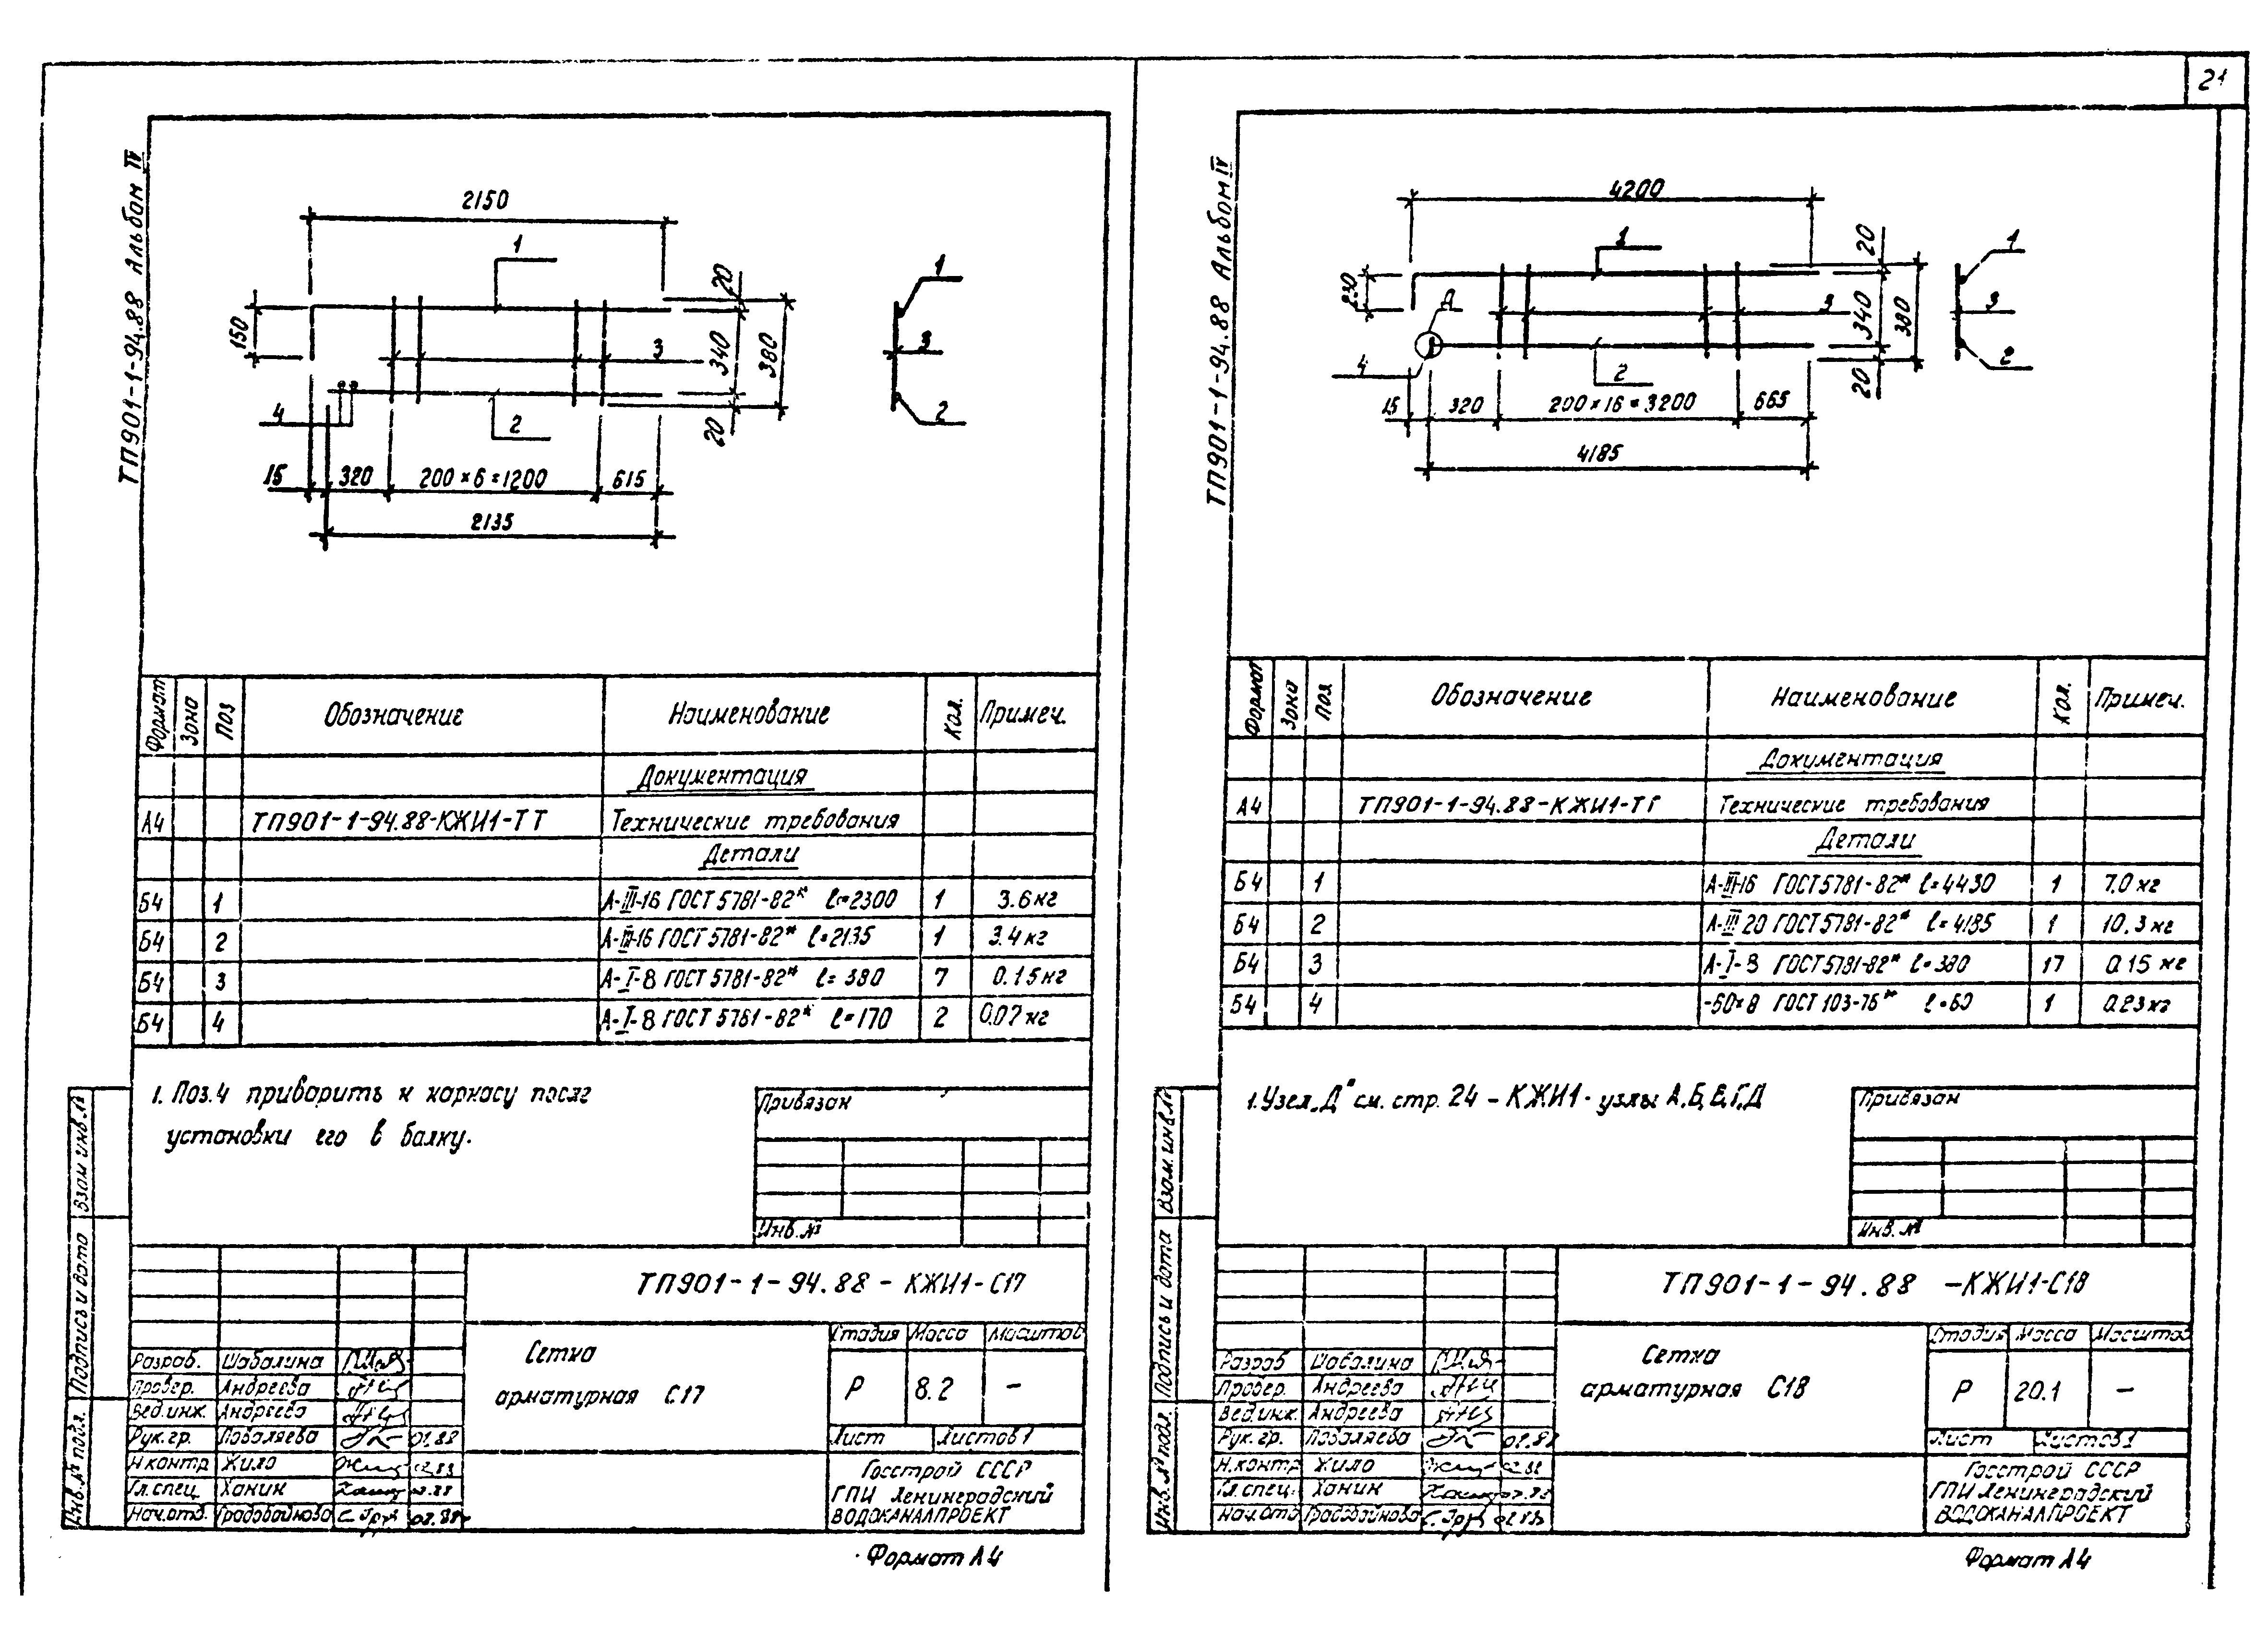 21
ТП901-1-94.88 Альбом IV
2150
1
150
20
340
380
20
3
4
2
15 320 200×6=1200 615
2135
1
3
2
Формат Зона Поз Обозначение Наименование Кол. Примеч.
Документация
А4 ТП901-1-94.88-КЖИ1-ТТ Технические требования
Детали
Б4 1 А-III-16 ГОСТ 5781-82* ℓ=2300 1 3.6кг
Б4 2 А-III-16 ГОСТ 5781-82* ℓ=2135 1 3.4кг
Б4 3 А-I-8 ГОСТ 5781-82* ℓ=380 7 0.15кг
Б4 4 А-I-8 ГОСТ 5781-82* ℓ=170 2 0.07кг
1. Поз.4 приварить к каркасу после
установки его в балку.
Привязан
Инв.№
Взам инв.№
Подпись и дата
Инв.№ подл.
ТП901-1-94.88-КЖИ1-С17
Сетка
арматурная С17
Стадия Масса Масштаб
Р 8.2 –
Лист Листов 1
Госстрой СССР
ГПИ Ленинградский
ВОДОКАНАЛПРОЕКТ
Разраб. Шабалина
Провер. Андреева
Вед.инж. Андреева
Рук.гр. Поваляева
Н.контр Жило
Гл.спец. Ханин
Нач.отд.
Формат А4
ТП901-1-94.88 Альбом IV
4200
1
230
Д
20
340
380
20
3
4
2
15 320 200×16=3200 665
4185
1
3
2
Формат Зона Поз Обозначение Наименование Кол. Примеч.
Документация
А4 ТП901-1-94.88-КЖИ1-ТТ Технические требования
Детали
Б4 1 А-III-16 ГОСТ 5781-82* ℓ=4430 1 7.0кг
Б4 2 А-III 20 ГОСТ 5781-82* ℓ=4185 1 10.3кг
Б4 3 А-I-8 ГОСТ 5781-82* ℓ=380 17 0.15 кг
Б4 4 -60×8 ГОСТ 103-76* ℓ=60 1 0.23кг
1. Узел „Д" см. стр. 24 - КЖИ1 - узлы А,Б,В,Г,Д
Привязан
Инв.№
Взам.инв.№
Подпись и дата
Инв.№ подл.
ТП901-1-94.88 -КЖИ1-С18
Сетка
арматурная С18
Стадия Масса Масштаб
Р 20.1 –
Лист Листов 1
Госстрой СССР
ГПИ Ленинградский
ВОДОКАНАЛПРОЕКТ
Разраб Шабалина
Провер. Андреева
Вед.инж. Андреева
Рук.гр. Поваляева
Н.контр Жило
Гл.спец. Ханин
Нач.отд
Формат А4